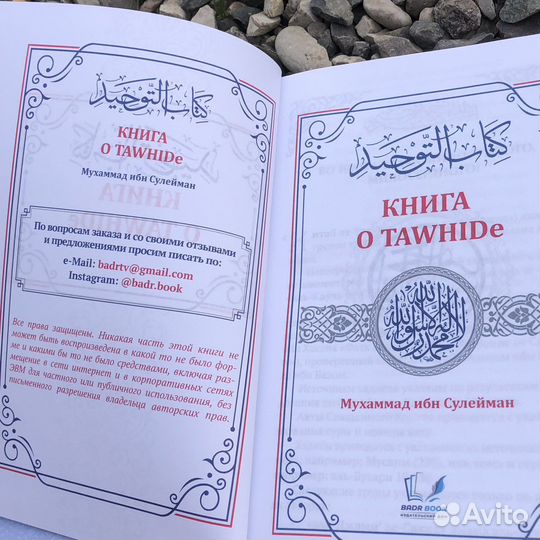 كتاب التوحيد
КНИГА
О TAWHIDe
Мухаммад ибн Сулейман
По вопросам заказа и со своими отзывами
и предложениями просим писать по:
e-Mail: badrtv@gmail.com
Instagram: @badr.book
Все права защищены. Никакая часть этой книги не
может быть воспроизведена в какой то не было фор-
ме и какими бы то не было средствами, включая раз-
мещение в сети интернет и в корпоративных сетях
ЭВМ для частного или публичного использования, без
письменного разрешения владельца авторских прав.
كتاب التوحيد
КНИГА
О TAWHIDe
لا إله إلا الله محمد رسول الله
Мухаммад ибн Сулейман
BADR BOOK
ИЗДАТЕЛЬСКИЙ ДОМ
Avito